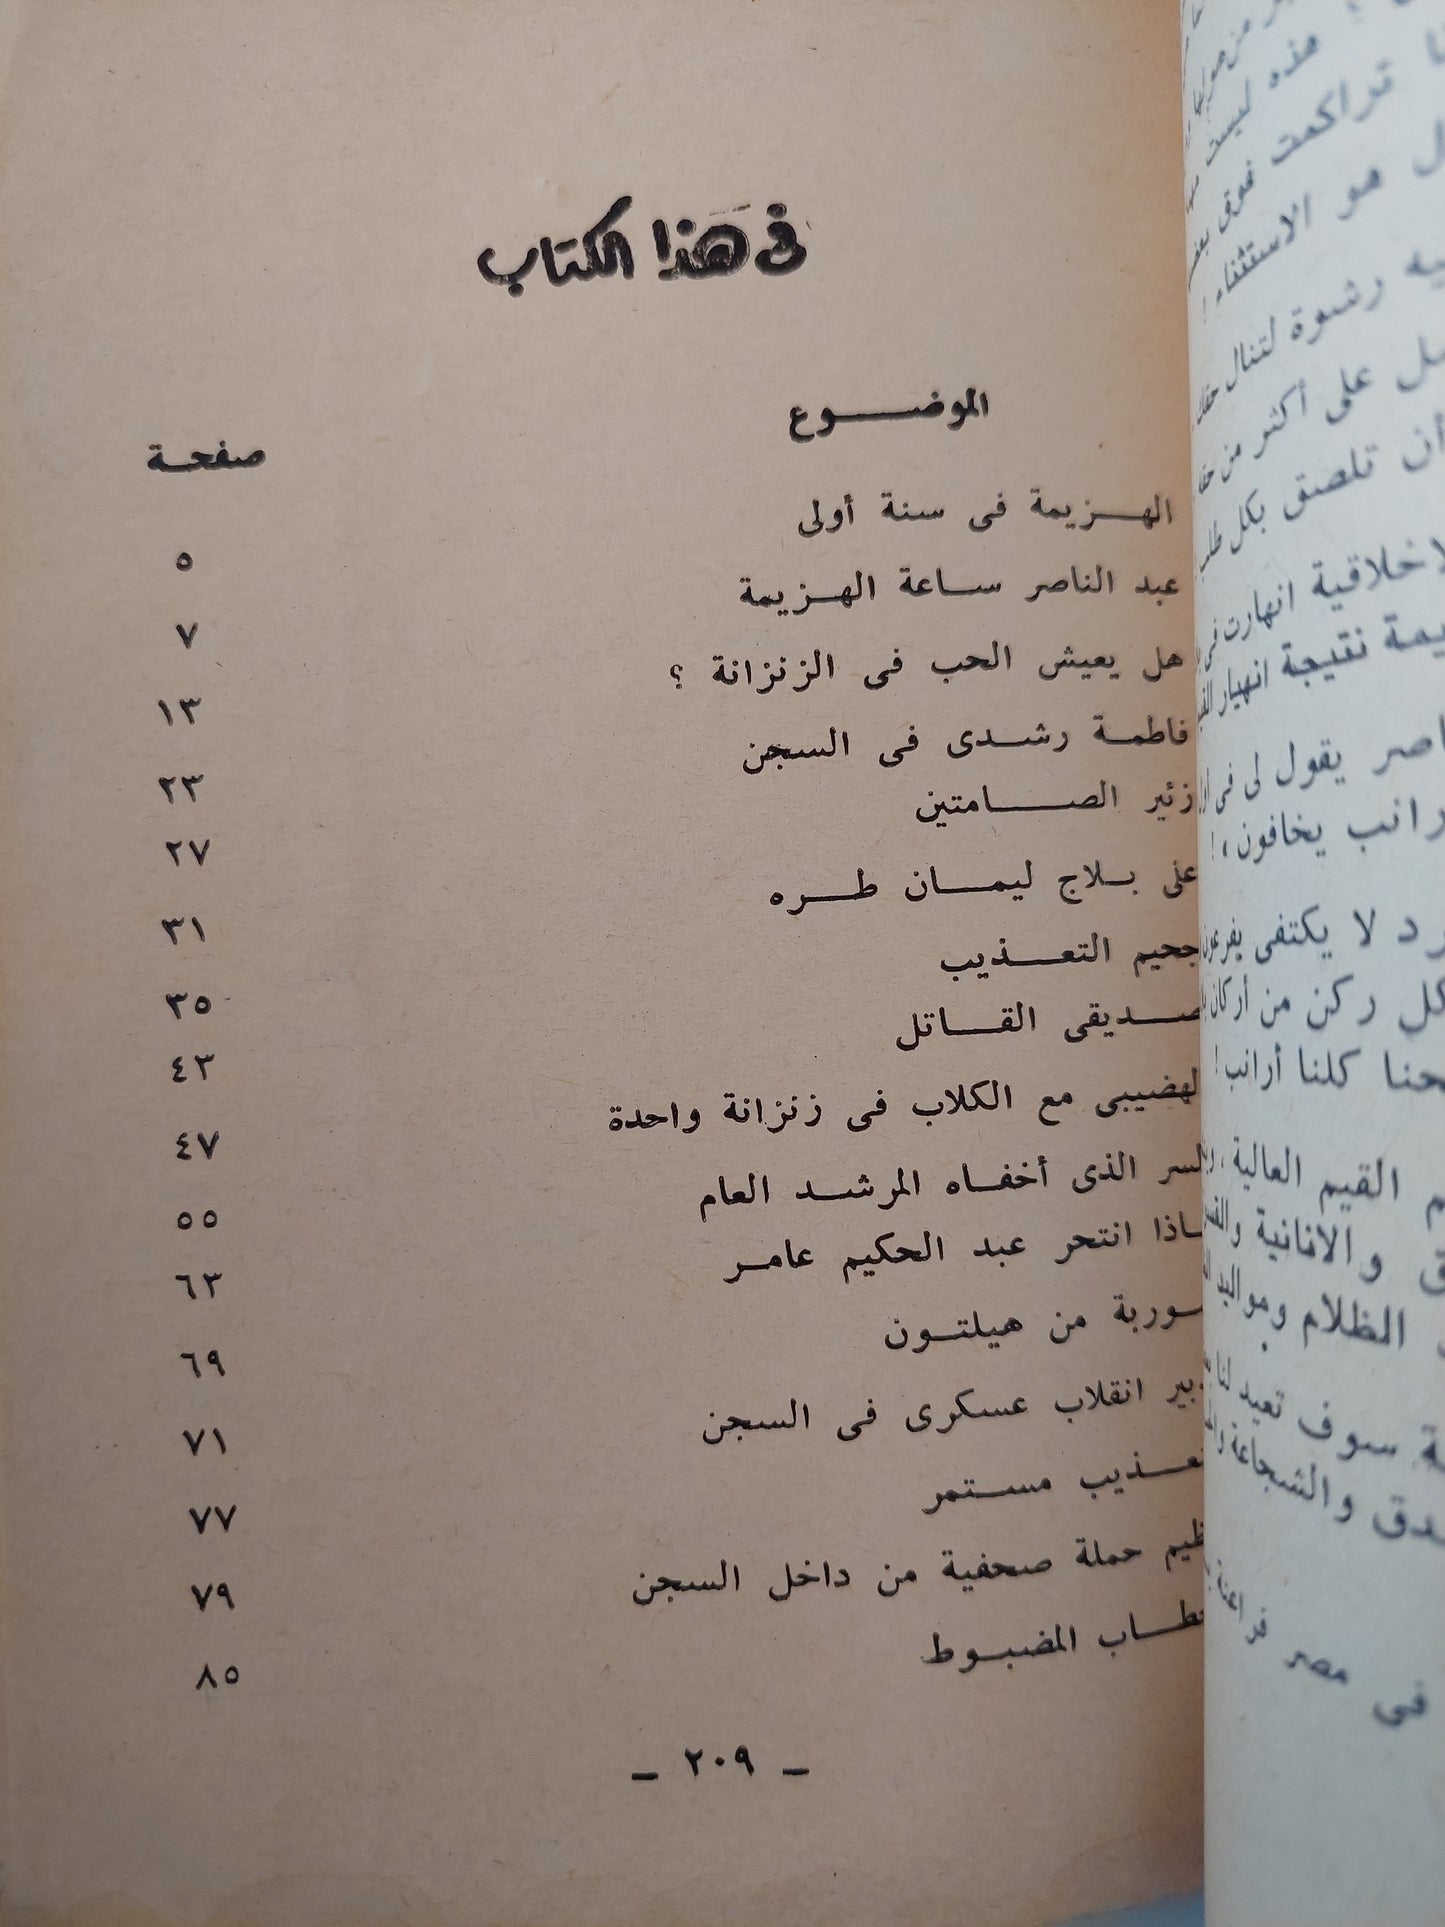 فى هذا الكتاب
الموضوع
صفحة
الهزيمة فى سنة أولى
٥
عبد الناصر ساعة الهزيمة
٧
هل يعيش الحب فى الزنزانة ؟
١٣
فاطمة رشدى فى السجن
٢٣
زئير الصامتين
٢٧
على بلاج ليمان طره
٣١
جحيم التعذيب
٣٥
صديقى القاتل
٤٣
الهضيبى مع الكلاب فى زنزانة واحدة
٤٧
السر الذى أخفاه المرشد العام
٥٥
انتحر عبد الحكيم عامر
٦٣
من هيلتون
٦٩
انقلاب عسكرى فى السجن
٧١
مستمر
٧٧
حملة صحفية من داخل السجن
٧٩
المضبوط
٨٥
ـ ٢٠٩ ـ
هذه ليست
تراكمت فوق
هو الاستثناء !
رشوة لتنال
على أكثر من
أن تلصق بكل
انهارت فى
نتيجة انهيار
يقول لى فى
يخافون ، !
لا يكتفى
كل ركن من أركان
كلنا أرانب !
القيم العالية ،
والانانية
الظلام ومواليد
سوف تعيد لنا
والشجاعة
فى مصر فراعنة